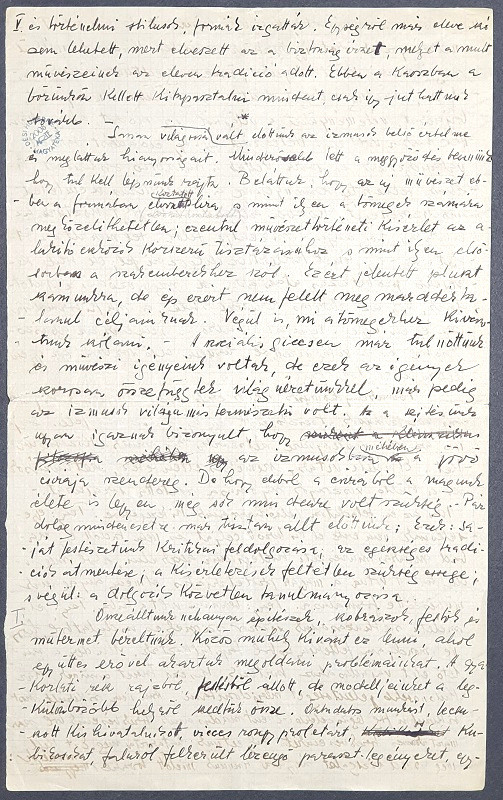 V és történelmi stílusok, formák izgatták. Egységről már eleve szó
sem lehetett, mert elveszett az a biztonság érzet, melyet a mult
művészeinek az eleven tradíció adott. Ebben a Kaoszban a
bőrünkön kellett kitapasztalni mindent, csak így juthattunk
tovább. –
világossá vált előttünk az izmusok belső értelme
és megláttuk hiányosságait. Minderősebb lett a meggyőződés bennünk
hogy túl kell lépnünk rajta. Beláttuk, hogy az új művészet eb-
ben a formában líra, s mint ilyen a tömegek számára
megközelíthetetlen; ezentul művészettörténeti kísérlet az a-
lakító eszközök korszerű tisztázásához s mint ilyen első-
sorban a szakemberekhez szól. Ezért jelentett pluszt
számunkra, de ép ezért nem felelt meg maradékta-
lanul céljainknak. Végül is, mi a tömegekhez kíván-
tunk szólani. – A szociális giccsen már túl nőttünk
és művészi igényeink voltak, de ezek az igények
szorosan összefüggtek világnézetünkkel, már pedig
az izmusok világa más természetű volt. Az a sejtésünk
ugyan igaznak bizonyult, hogy
az izmusok méhében a jövő
csirája szendereg. De hogy ebből a csirából a magunk
élete is legyen még sok mindenre volt szükség. Pár
dolog mindenesetre már tisztán állt előttünk; Ezek: sa-
ját festészetünk kritikai feldolgozása, az egészséges tradi-
ciók átmentése, a kísérletezések feltétlen szükségessége,
s végül: a dolgozók közvetlen tanulmányozása.
I. Összeálltunk néhányan építészek, szobrászok, festők és
műtermet béreltünk. Közös műhely kívánt ez lenni, ahol
együttes erővel akartuk megoldani problémáinkat. A gya-
korlati rész rajzból, festésből állott, de modelljeinket a leg-
különbözőbb helyről szedtük össze. Öntudatos munkást, lecsú-
szott kishivatalnokot, vicces rongyproletárt, ku-
bikosokat, faluról felkerült lézengő paraszt legényeket, egy-